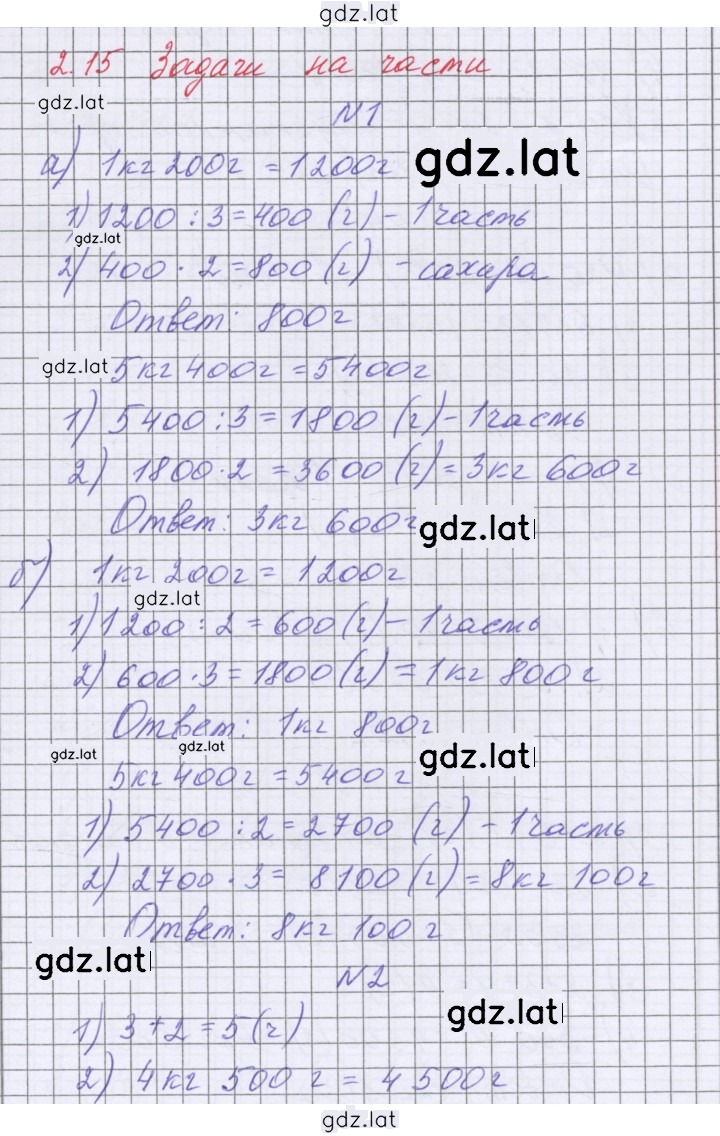 gdz.lat
2.15 Задачи на части
gdz.lat
N1
а) 1кг 200г = 1200г gdz.lat
1) 1200 : 3 = 400 (г) - 1 часть
gdz.lat
2) 400 · 2 = 800 (г) - сахара
Ответ: 800г
gdz.lat 5кг 400г = 5400г
1) 5400 : 3 = 1800 (г) - 1 часть
2) 1800 · 2 = 3600 (г) = 3кг 600г
Ответ: 3кг 600г gdz.lat
б) 1кг 200г = 1200г
gdz.lat
1) 1200 : 2 = 600 (г) - 1 часть
2) 600 · 3 = 1800 (г) = 1кг 800г
Ответ: 1кг 800г
gdz.lat gdz.lat gdz.lat
5кг 400г = 5400г
1) 5400 : 2 = 2700 (г) - 1 часть
2) 2700 · 3 = 8100 (г) = 8кг 100г
Ответ: 8кг 100г
gdz.lat
N2
gdz.lat
1) 3 + 2 = 5 (ч)
2) 4кг 500 г = 4500г
gdz.lat